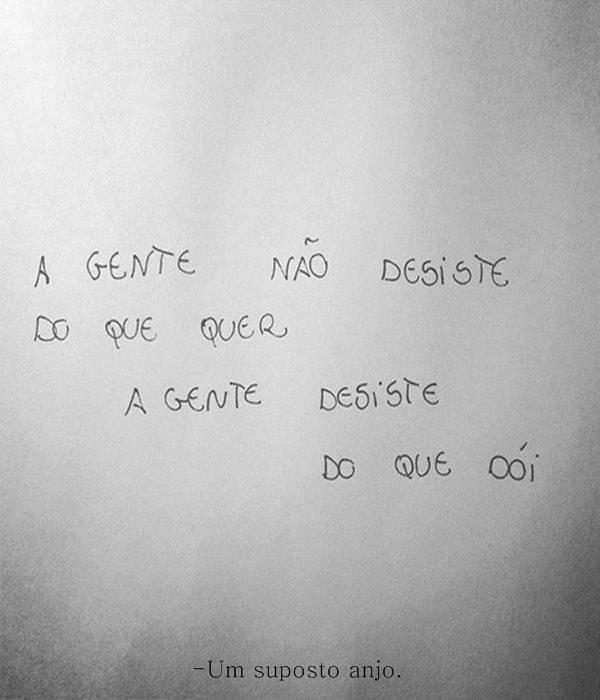 A GENTE NÃO DESISTE
DO QUE QUER
A GENTE DESISTE
DO QUE DÓi
-Um suposto anjo.